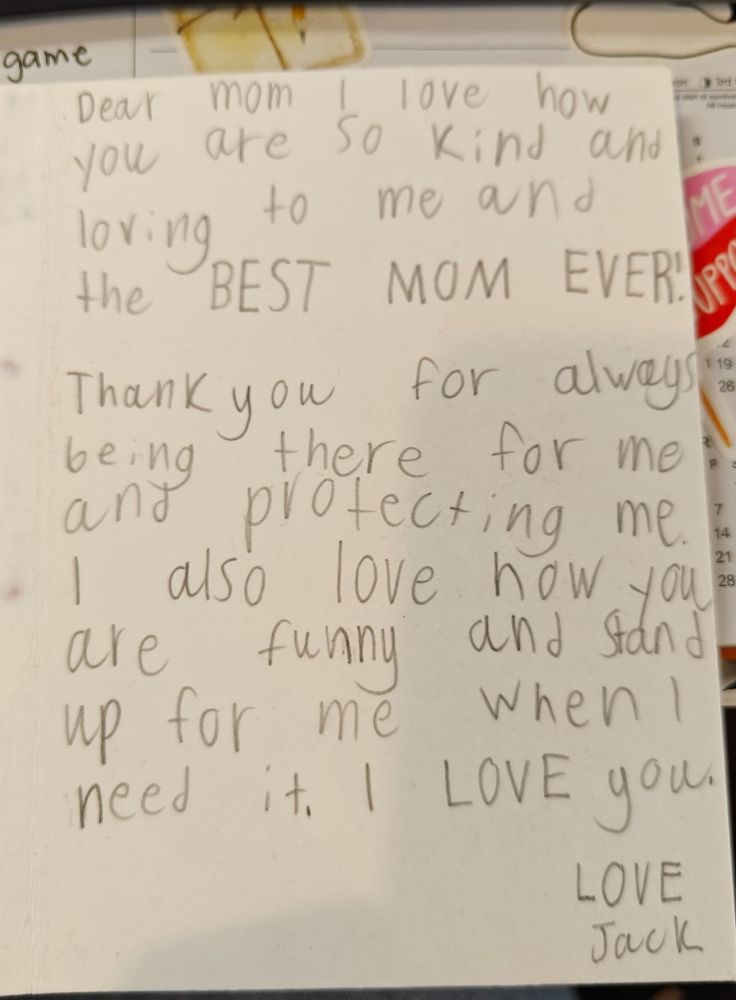 game
Dear mom I love how
you are so kind and
loving to me and
the BEST MOM EVER!
Thank you for always
being there for me
and protecting me.
I also love how you
are funny and stand
up for me when I
need it. I LOVE you.
LOVE
Jack
ME
19
26
7
14
21
28